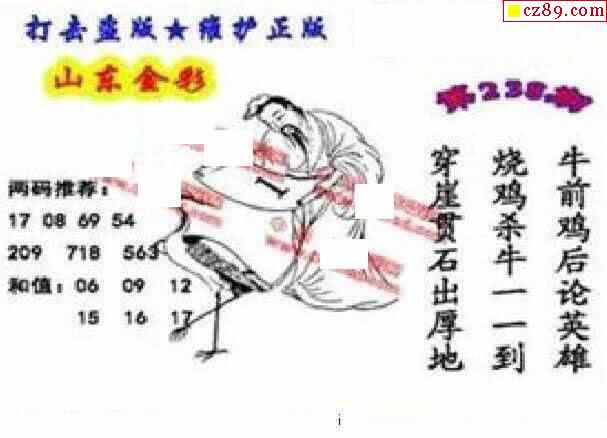 cz89.com
打击盗版★维护正版
山东金彩
第238期
牛前鸡后论英雄
烧鸡杀牛一一到
穿崖贯石出厚地
两码推荐：
17 08 69 54
209 718 563
和值：06 09 12
15 16 17
1
i